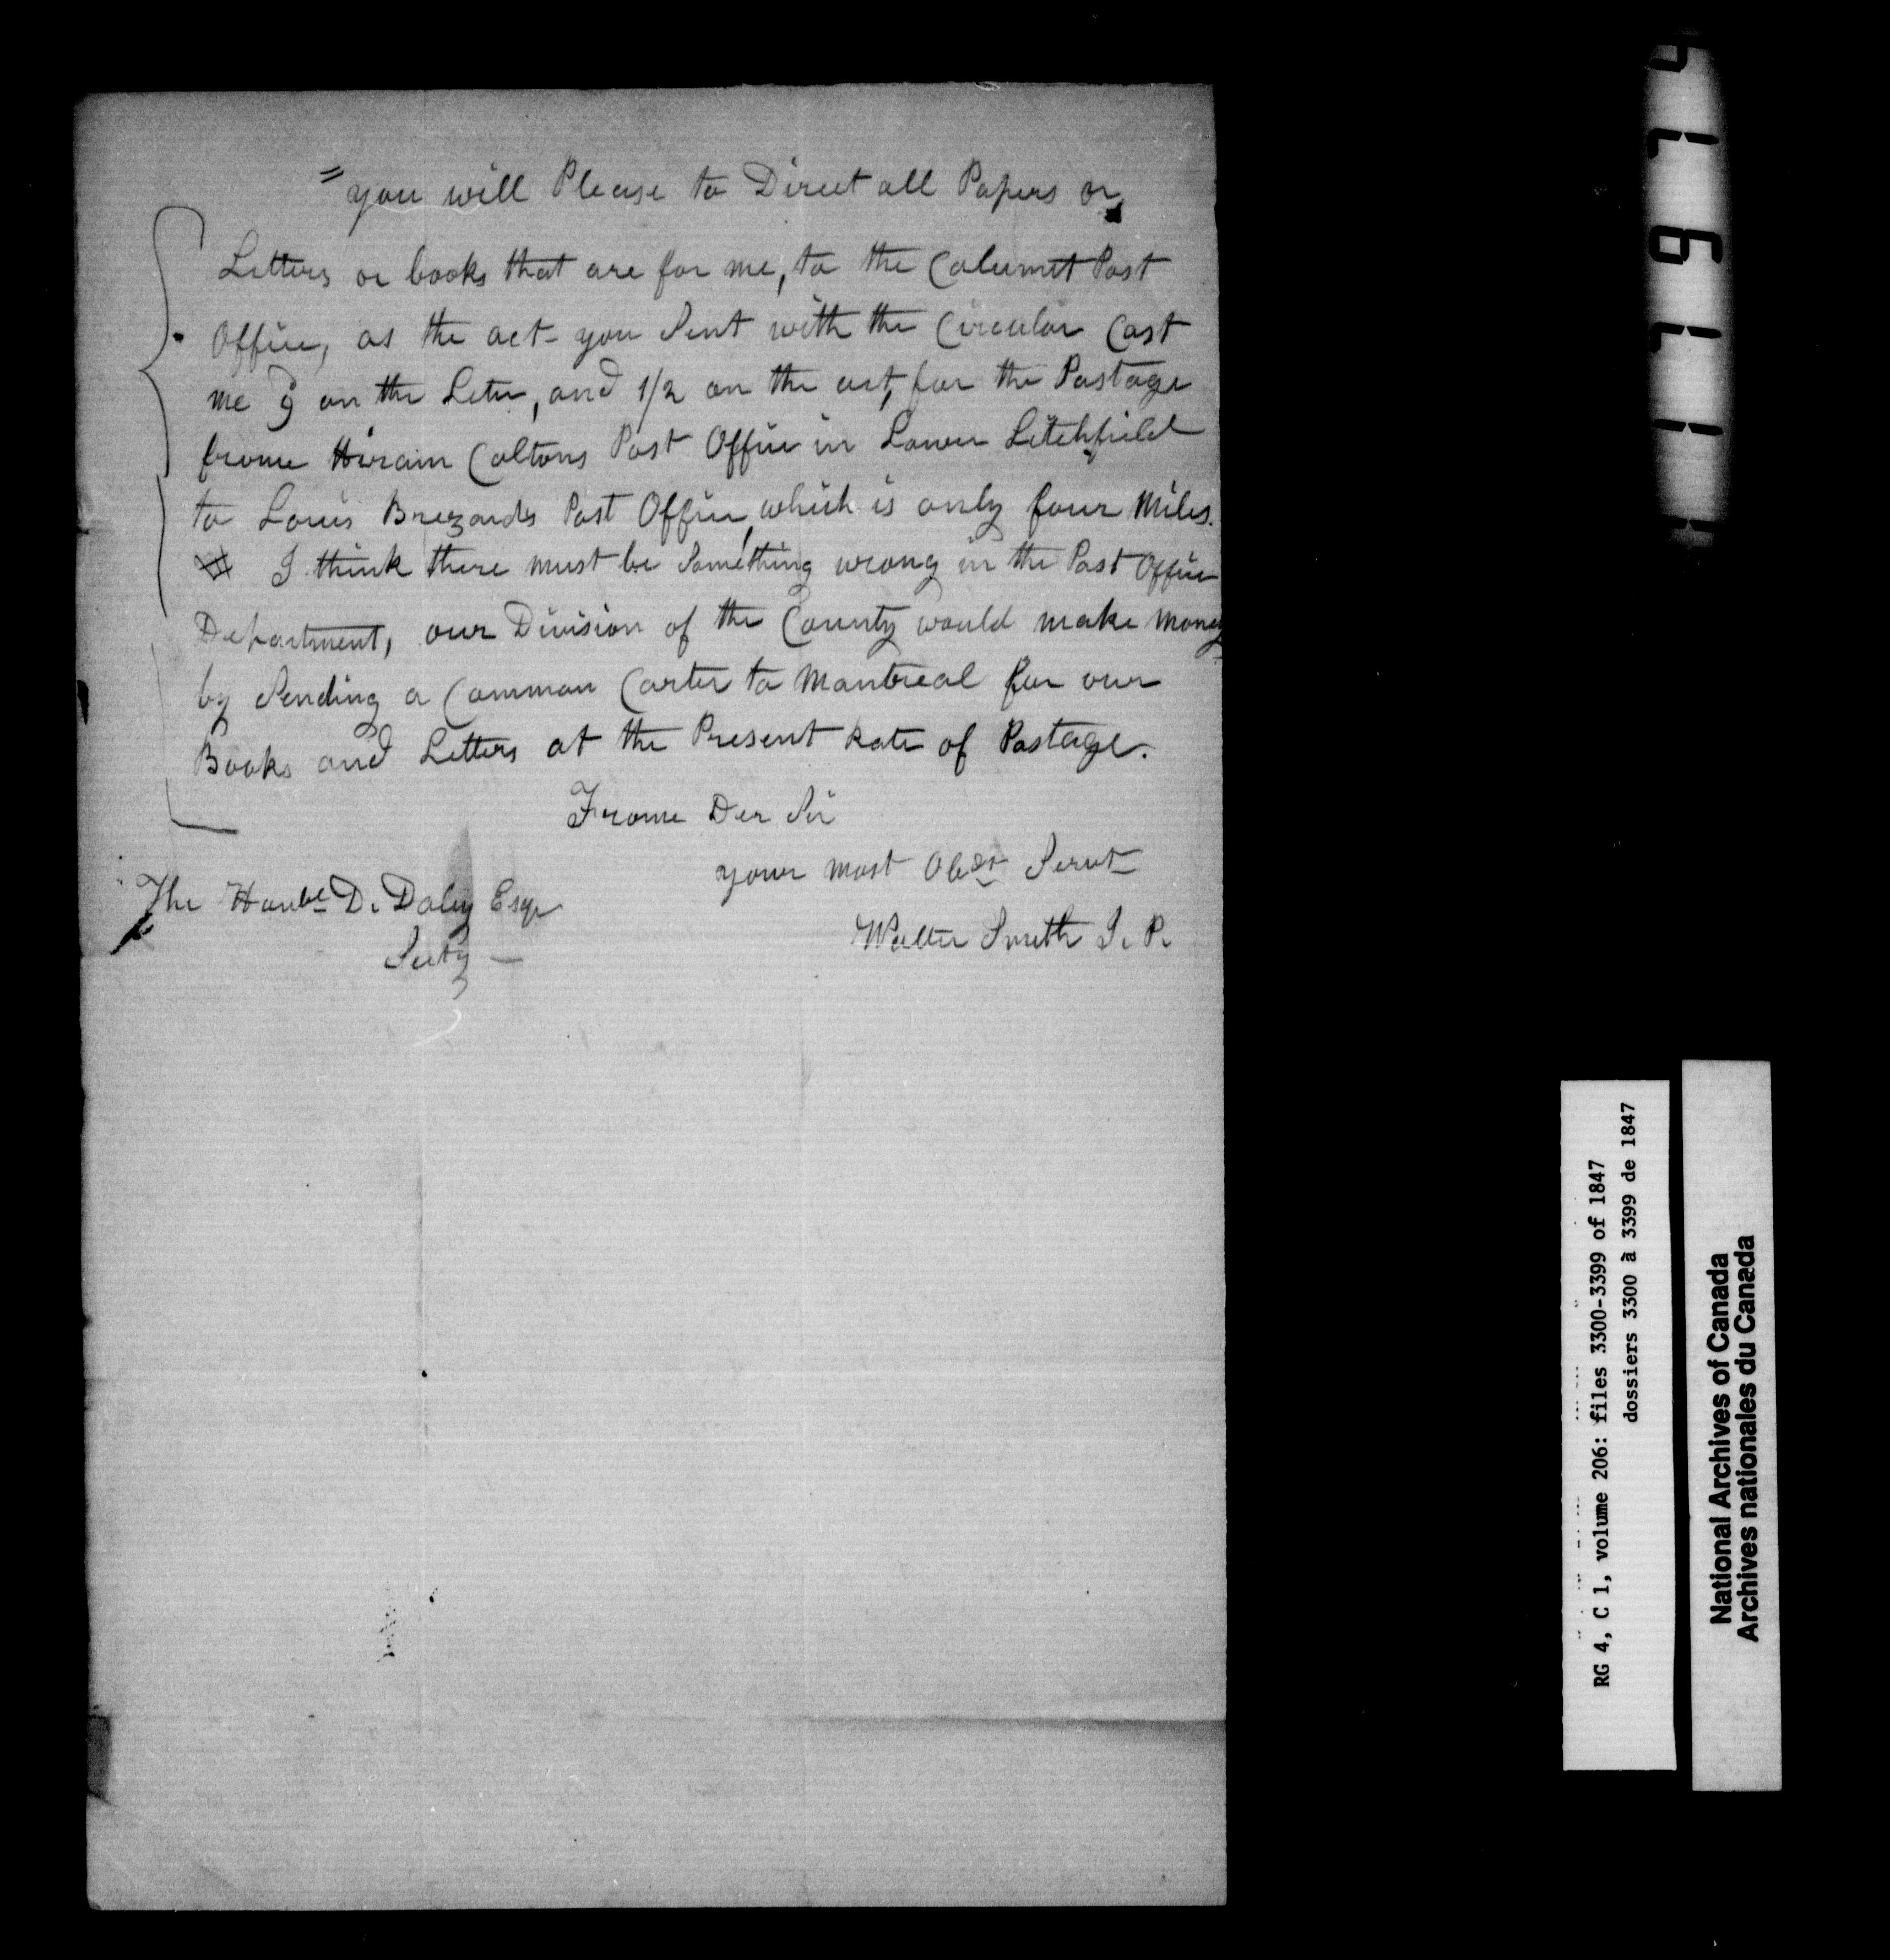 "you will Please to Direct all Papers or
Letters or books that are for me, to the Calumet Post
Office, as the act you Sent with the Circular Cost
me 9 on the Leter, and 1/2 on the act, for the Postage
frome Hiram Coltons Post Office in Lower Litchfield
to Louis Brezards Post Office, which is only four Miles.
I think there must be Something wrong in the Post Office
Department, our Division of the County would make money
by Sending a Common Carter to Montreal for our
Books and Letters at the Present Rate of Postage.
Frome Der Sir
your most Obdt Servt
The Honble D. Daly Esqr
Walter Smith J. P.
Secty
RG 4, C 1, volume 206: files 3300-3399 of 1847
dossiers 3300 à 3399 de 1847
National Archives of Canada
Archives nationales du Canada